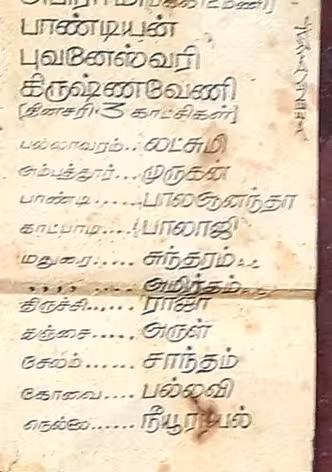 பாண்டியன்
புவனேஸ்வரி
கிருஷ்ணவேணி
[தினசரி 3 காட்சிகள்]
பல்லாவரம்.. லட்சுமி
அம்பத்தூர்... முருகன்
பாண்டி...... பாலஆனந்தா
காட்பாடி.... பாலாஜி
மதுரை..... சுந்தரம்
,, ,, .... அமிர்தம்
திருச்சி..... ராஜா
தஞ்சை..... அருள்
சேலம்...... சாந்தம்
கோவை.... பல்லவி
நெல்லை......